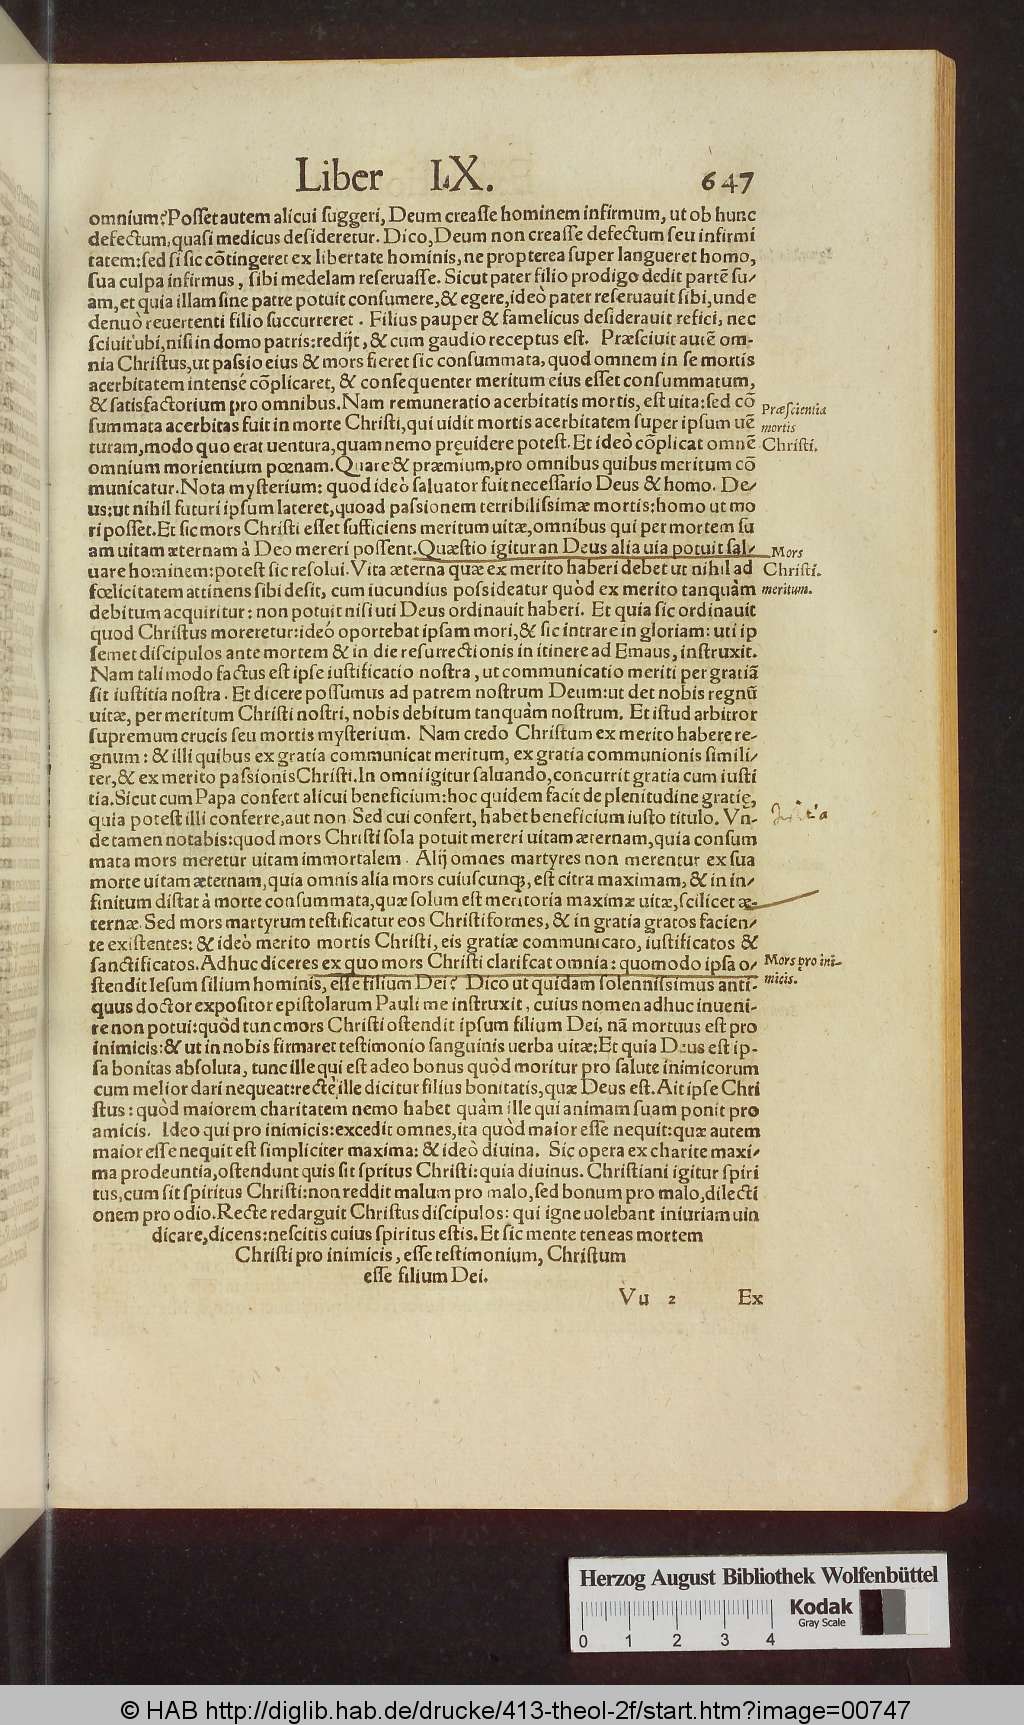 Liber LX. 647
omnium? Posset autem alicui suggeri, Deum creasse hominem infirmum, ut ob hunc
defectum, quasi medicus desideretur. Dico, Deum non creasse defectum seu infirmi
tatem: sed si sic cõtingeret ex libertate hominis, ne propterea super langueret homo,
sua culpa infirmus, sibi medelam reseruasse. Sicut pater filio prodigo dedit partẽ su/
am, et quia illam sine patre potuit consumere, & egere, ideò pater reseruauit sibi, unde
denuò reuertenti filio succurreret. Filius pauper & famelicus desiderauit refici, nec
sciuit ubi, nisi in domo patris: redijt, & cum gaudio receptus est. Præsciuit autẽ om-
nia Christus, ut passio eius & mors fieret sic consummata, quod omnem in se mortis
acerbitatem intensé cõplicaret, & consequenter meritum eius esset consummatum,
& satisfactorium pro omnibus. Nam remuneratio acerbitatis mortis, est uita: sed cõ
summata acerbitas fuit in morte Christi, qui uidit mortis acerbitatem super ipsum uẽ
turam, modo quo erat uentura, quam nemo pręuidere potest. Et ideò cõplicat omnẽ
omnium morientium pœnam. Quare & præmium, pro omnibus quibus meritum cõ
municatur. Nota mysterium: quod ideò saluator fuit necessario Deus & homo. De/
us: ut nihil futuri ipsum lateret, quoad passionem terribilissimæ mortis: homo ut mo
ri posset. Et sic mors Christi esset sufficiens meritum uitæ, omnibus qui per mortem su
am uitam æternam à Deo mereri possent. Quæstio igitur an Deus alia uia potuit sal/
uare hominem: potest sic resolui. Vita æterna quæ ex merito haberi debet ut nihil ad
fœlicitatem attinens sibi desit, cum iucundius possideatur quòd ex merito tanquàm
debitum acquiritur: non potuit nisi uti Deus ordinauit haberi. Et quia sic ordinauit
quod Christus moreretur: ideó oportebat ipsam mori, & sic intrare in gloriam: uti ip
semet discipulos ante mortem & in die resurrectionis in itinere ad Emaus, instruxit.
Nam tali modo factus est ipse iustificatio nostra, ut communicatio meriti per gratiã
sit iustitia nostra. Et dicere possumus ad patrem nostrum Deum: ut det nobis regnũ
uitæ, per meritum Christi nostri, nobis debitum tanquàm nostrum. Et istud arbitror
supremum crucis seu mortis mysterium. Nam credo Christum ex merito habere re-
gnum: & illi quibus ex gratia communicat meritum, ex gratia communionis simili/
ter, & ex merito passionis Christi. In omni igitur saluando, concurrit gratia cum iusti
tia. Sicut cum Papa confert alicui beneficium: hoc quidem facit de plenitudine gratię,
quia potest illi conferre, aut non Sed cui confert, habet beneficium iusto titulo. Vn-
de tamen notabis: quod mors Christi sola potuit mereri uitam æternam, quia consum
mata mors meretur uitam immortalem. Alij omnes martyres non merentur ex sua
morte uitam æternam, quia omnis alia mors cuiuscunq;, est citra maximam, & in in/
finitum distat à morte consummata, quæ solum est meritoria maximæ uitæ, scilicet æ-
ternæ. Sed mors martyrum testificatur eos Christiformes, & in gratia gratos facien/
te existentes: & ideò merito mortis Christi, eis gratiæ communicato, iustificatos &
sanctificatos. Adhuc diceres ex quo mors Christi clarifcat omnia: quomodo ipsa o/
stendit Iesum filium hominis, esse filium Dei? Dico ut quidam solennissimus anti-
quus doctor expositor epistolarum Pauli me instruxit, cuius nomen adhuc inueni-
re non potui: quòd tunc mors Christi ostendit ipsum filium Dei, nã mortuus est pro
inimicis: & ut in nobis firmaret testimonio sanguinis uerba uitæ: Et quia Deus est ip-
sa bonitas absoluta, tunc ille qui est adeo bonus quòd moritur pro salute inimicorum
cum melior dari nequeat: rectè ille dicitur filius bonitatis, quæ Deus est. Ait ipse Chri
stus: quòd maiorem charitatem nemo habet quàm ille qui animam suam ponit pro
amicis. Ideo qui pro inimicis: excedit omnes, ita quòd maior esse nequit: quæ autem
maior esse nequit est simpliciter maxima: & ideò diuina. Sic opera ex charite maxi/
ma prodeuntia, ostendunt quis sit spritus Christi: quia diuinus. Christiani igitur spiri
tus, cum sit spiritus Christi: non reddit malum pro malo, sed bonum pro malo, dilecti
onem pro odio. Recte redarguit Christus discipulos: qui igne uolebant iniuriam uin
dicare, dicens: nescitis cuius spiritus estis. Et sic mente teneas mortem
Christi pro inimicis, esse testimonium, Christum
esse filium Dei.
Vu 2 Ex
Præscientia
mortis
Christi.
Mors
Christi.
meritum.
Mors pro ini-
micis.
Herzog August Bibliothek Wolfenbüttel
Kodak
Gray Scale
0 1 2 3 4
© HAB http://diglib.hab.de/drucke/413-theol-2f/start.htm?image=00747